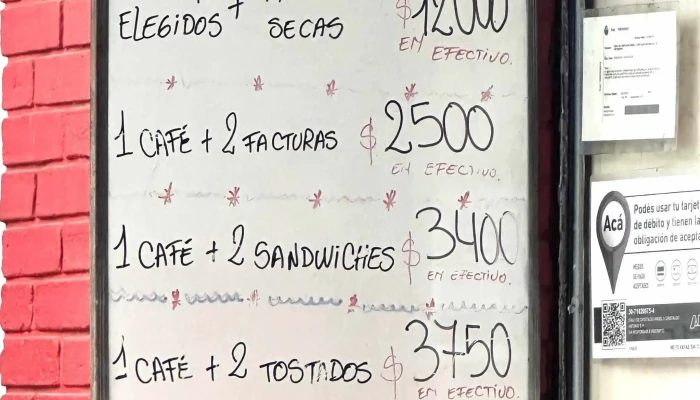 ELEGIDOS + SECAS $12000
EN EFECTIVO.
1 CAFÉ + 2 FACTURAS $2500
EN EFECTIVO.
1 CAFÉ + 2 SANDWICHES $3400
EN EFECTIVO.
1 CAFÉ + 2 TOSTADOS $3750
EN EFECTIVO.
Acá
Podés usar tu tarjet
de débito y tienen la
obligación de acepta